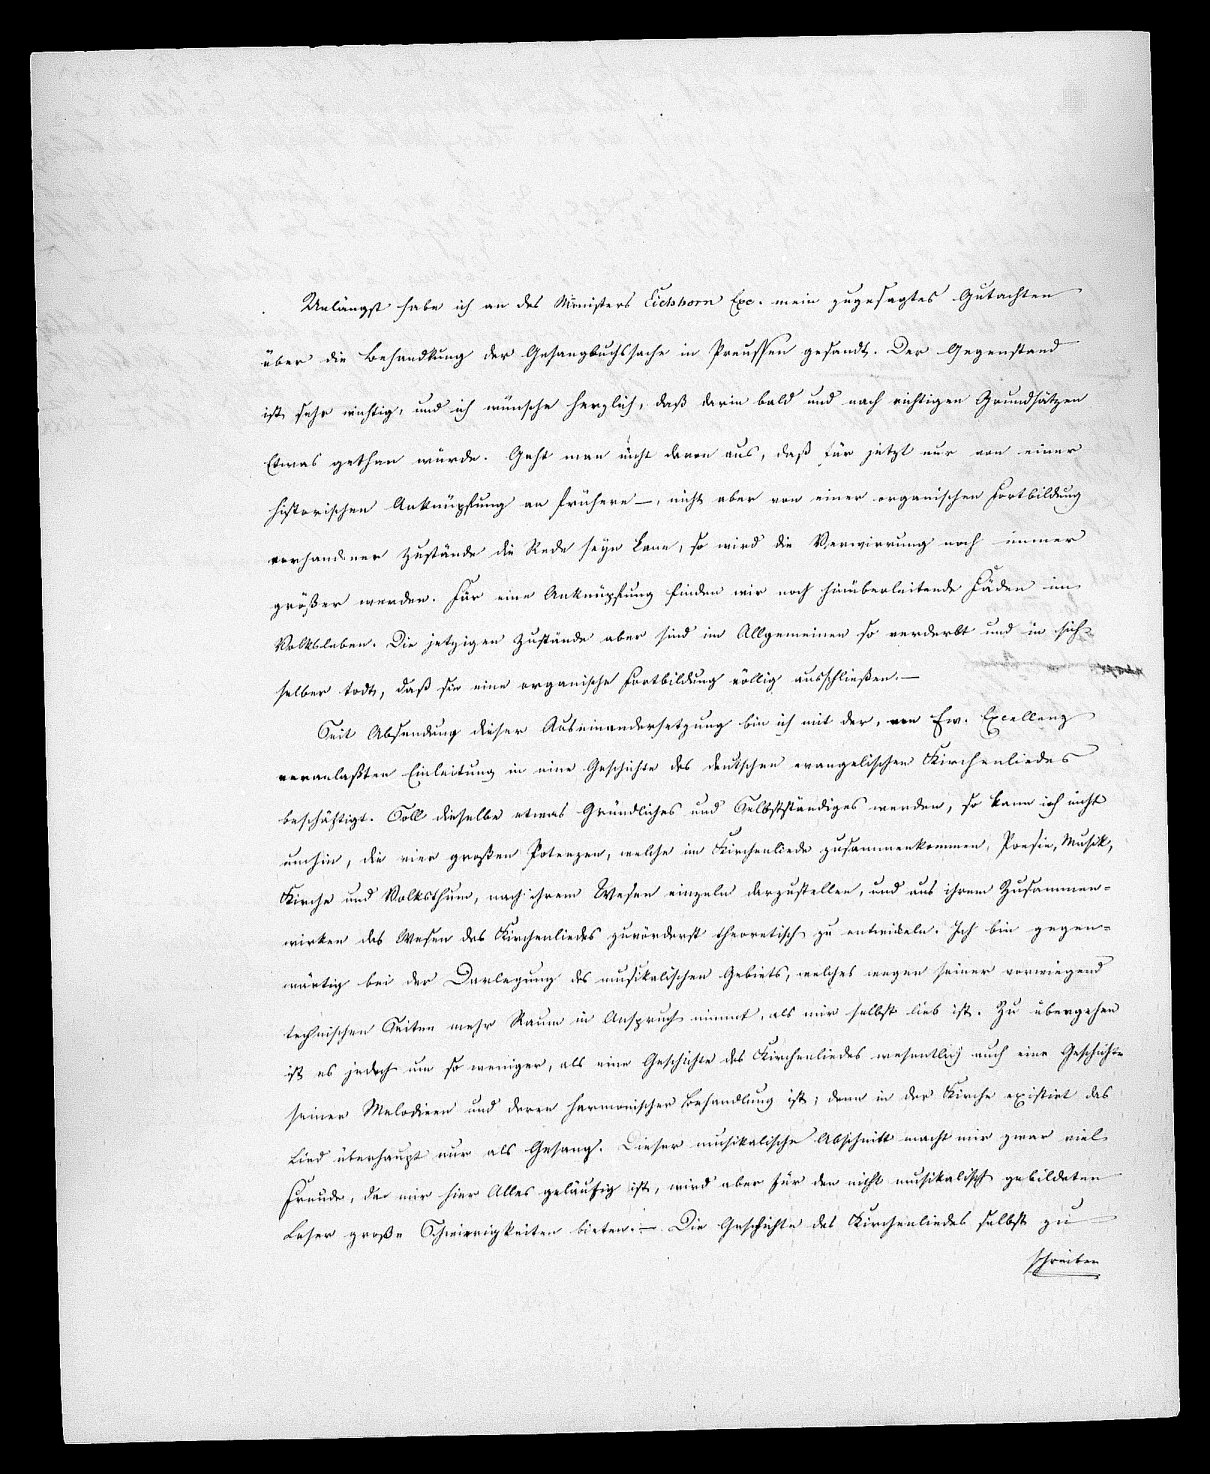 Unlängst habe ich an des Ministers Eichhorn Exc. mein zugesagtes Gutachten
über die Behandlung der Gesangbuchssache in Preussen gesandt. Der Gegenstand
ist sehr wichtig, und ich wünsche herzlich, daß darin bald und nach richtigen Grundsätzen
Etwas gethan würde. Geht man nicht davon aus, daß für jetzt nur von einer
historischen Anknüpfung an frühere —, nicht aber von einer organischen Fortbildung
vorhandener Zustände die Rede seyn kann, so wird die Verwirrung noch immer
größer werden. Für eine Anknüpfung finden wir noch hinüberleitende Fäden im
Volksleben. Die jetzigen Zustände aber sind im Allgemeinen so verderbt und in sich
selber todt, daß sie eine organische Fortbildung völlig ausschließen. —
Seit Absendung dieser Auseinandersetzung bin ich mit der, von Ew. Excellenz
veranlaßten Einleitung in eine Geschichte des deutschen evangelischen Kirchenliedes
beschäftigt. Soll dieselbe etwas Gründliches und Selbstständiges werden, so kann ich nicht
umhin, die vier großen Potenzen, welche im Kirchenliede zusammenkommen, Poesie, Musik,
Kirche und Volksthum, nach ihrem Wesen einzeln darzustellen, und aus ihrem Zusammen-
wirken das Wesen des Kirchenliedes zuvörderst theoretisch zu entwickeln. Ich bin gegen-
wärtig bei der Darlegung des musikalischen Gebiets, welches wegen seiner vorwiegend
technischen Seiten mehr Raum in Anspruch nimmt, als mir selbst lieb ist. Zu übergehen
ist es jedoch um so weniger, als eine Geschichte des Kirchenliedes wesentlich auch eine Geschichte
seiner Melodieen und deren harmonischer Behandlung ist; denn in der Kirche existirt das
Lied überhaupt nur als Gesang. Dieser musikalische Abschnitt macht mir zwar viel
Freude, da mir hier Alles geläufig ist, wird aber für den nicht musikalisch gebildeten
Leser große Schwierigkeiten bieten. — Die Geschichte des Kirchenliedes selbst zu
schreiben